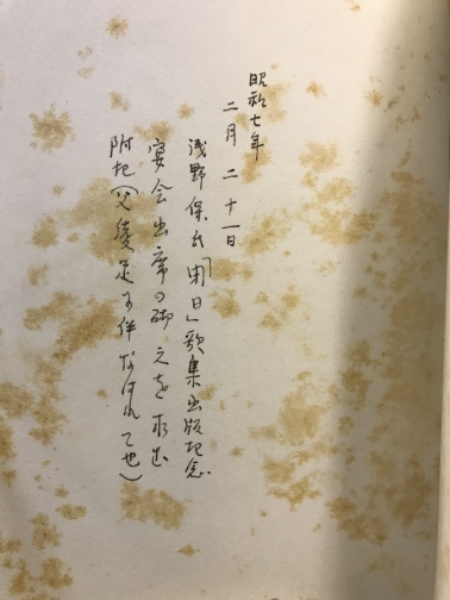 昭和七年
二月二十一日
浅野保氏「周日」歌集出版記念
宴会出席の砌之を求む
附記(父綾足る伴なはれて也)